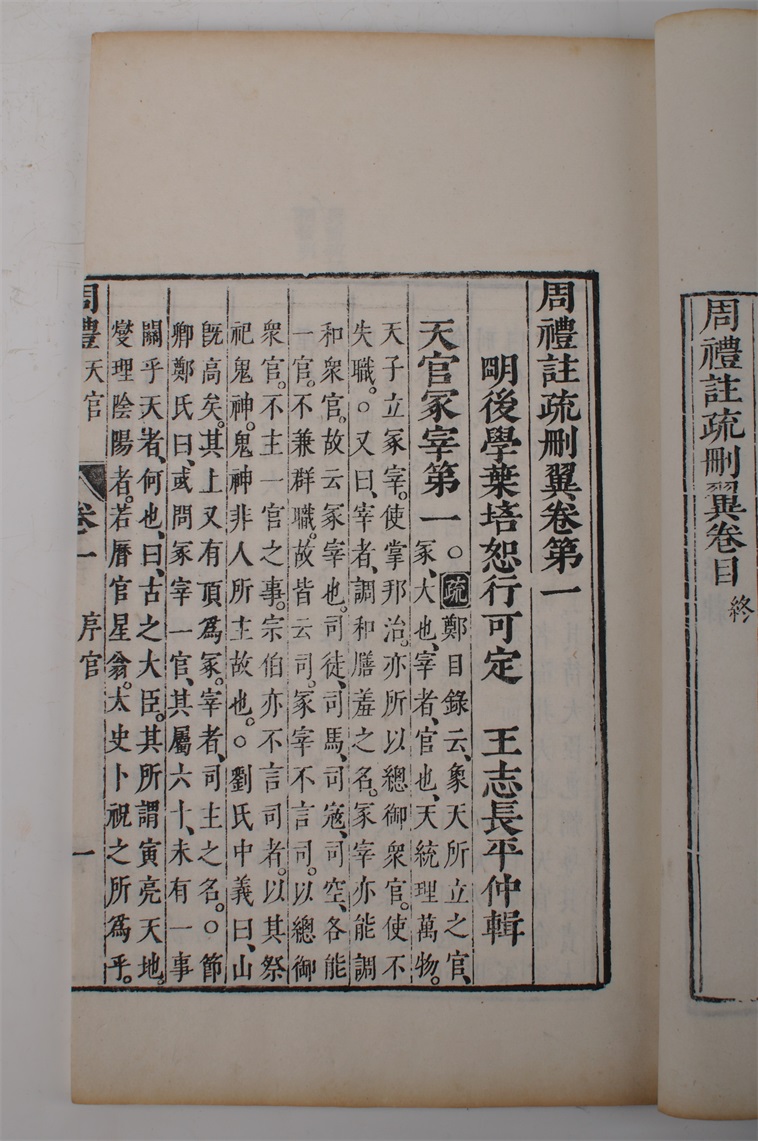 周禮註疏刪翼卷目終
周禮註疏刪翼卷第一
明後學葉培恕行可定　王志長平仲輯
天官冢宰第一○疏鄭目錄云、象天所立之官、
冢、大也、宰者、官也、天統理萬物。
天子立冢宰。使掌邦治。亦所以總御衆官。使不
失職。○又曰、宰者、調和膳羞之名。冢宰亦能調
和衆官。故云冢宰也。司徒、司馬、司寇、司空、各能
一官。不兼群職。故皆云司。冢宰不言司。以總御
衆官。不主一官之事。宗伯亦不言司者。以其祭
祀鬼神。鬼神非人所主故也。○劉氏中義曰、山
旣高矣。其上又有頂爲冢。宰者、司主之名。○節
卿鄭氏曰、或問冢宰一官、其屬六十、未有一事
關乎天者、何也、曰、古之大臣。其所謂寅亮天地。
燮理陰陽者。若曆官星翁。太史卜祝之所爲乎。
周禮天官　卷一　序官　一